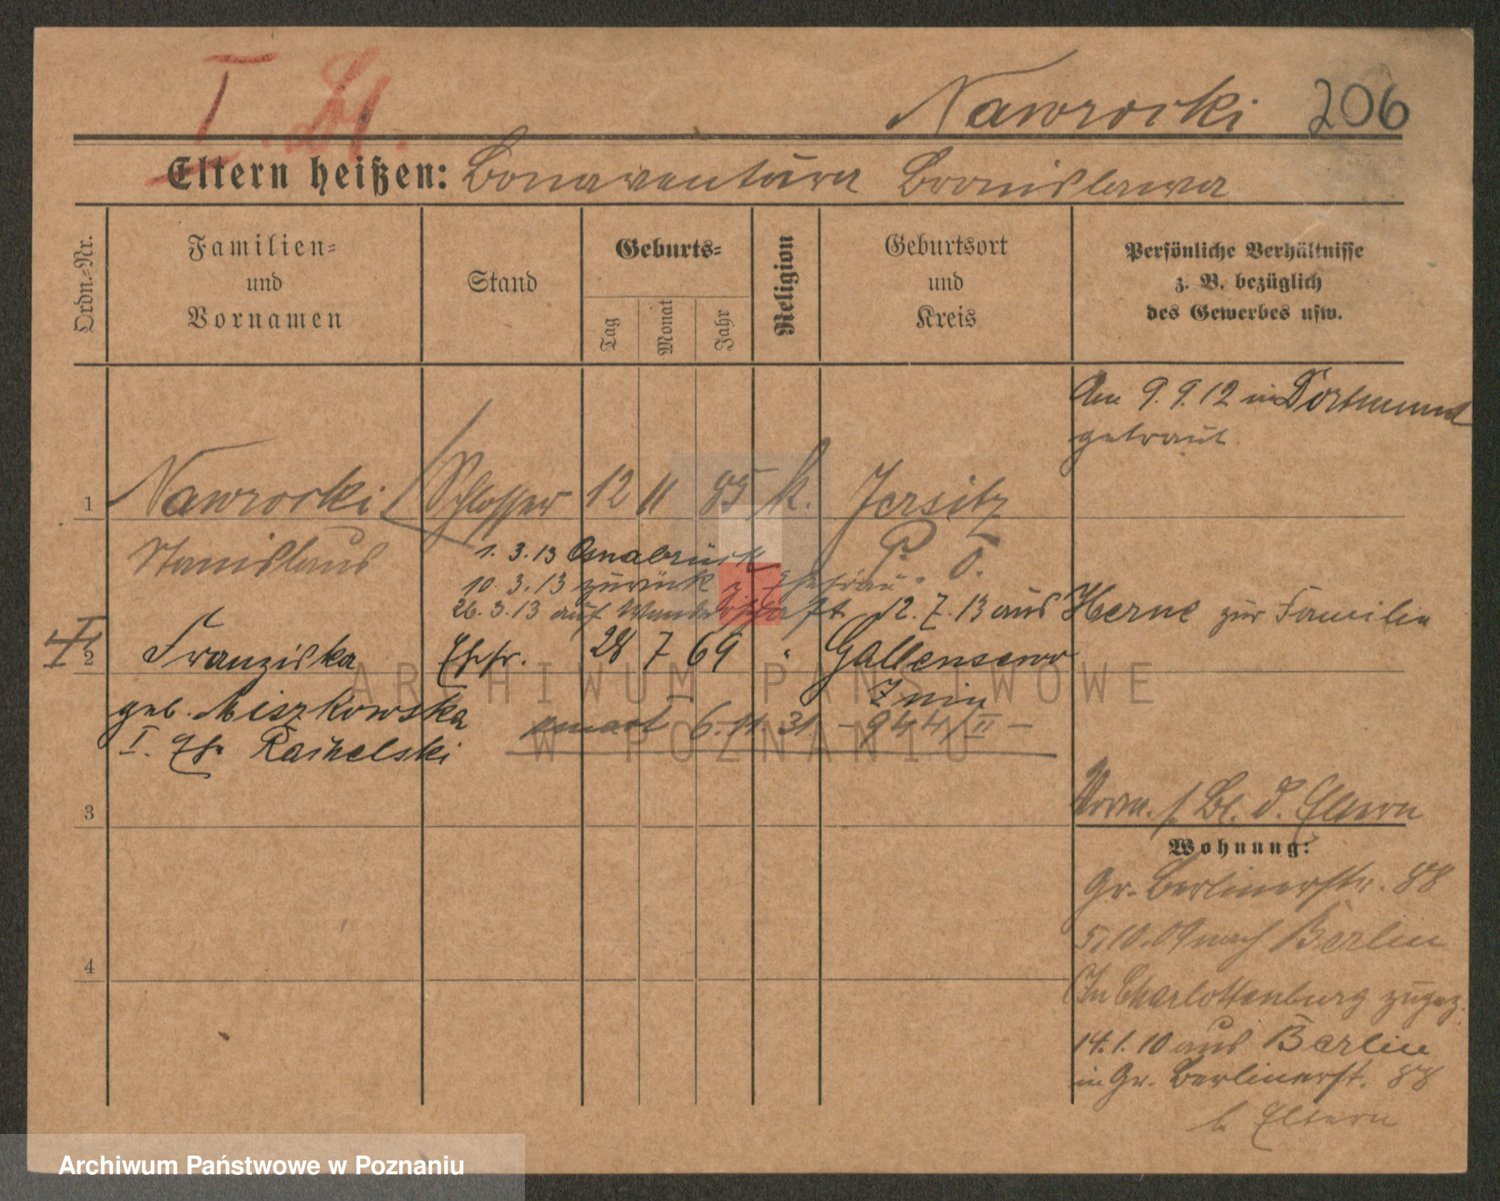 I. Bl.
Nawrocki 206
Eltern heißen: Bonaventura Bronislawa
Ordn.-Nr.
Familien-
und
Vornamen
Stand
Geburts-
Tag
Monat
Jahr
Religion
Geburtsort
und
Kreis
Persönliche Verhältnisse
z. B. bezüglich
des Gewerbes usw.
Am 9.9.12 in Dortmund
getraut.
1 Nawrocki Schlosser 12 11 85 k. Jersitz
Stanislaus P. O.
1.3.13 Osnabrück
10.3.13 zurück z. Ehefrau.
26.3.13 auf Wanderschaft 12.7.13 aus Herne zur Familie
2 Franziska Ehfr. 28 7 69 " Gallensewo
geb. Miszkowska Znin
6.11.31 - 944/II -
I. Ehe
3
Vorm. s. Bl. d. Eltern
Wohnung:
Gr. Berlinerstr. 88
5.10.09 nach Berlin
In Charlottenburg zugez.
4
14.1.10 aus Berlin
in Gr. Berlinerst. 88
b. Eltern
ARCHIWUM PAŃSTWOWE
W POZNANIU
Archiwum Państwowe w Poznaniu